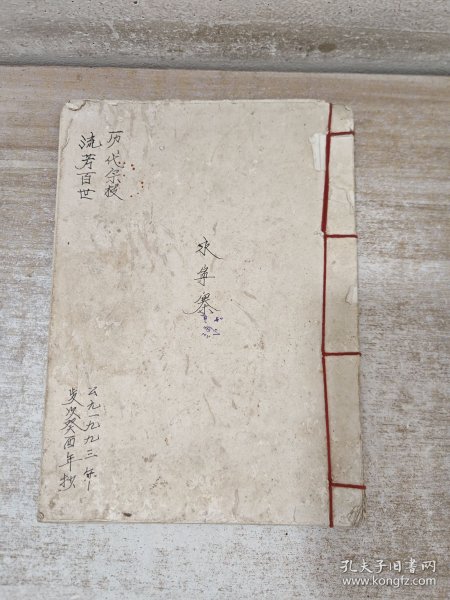 历代宗枝
流芳百世
公元一九九三年
岁次癸酉年抄
孔夫子旧书网
www.kongfz.com